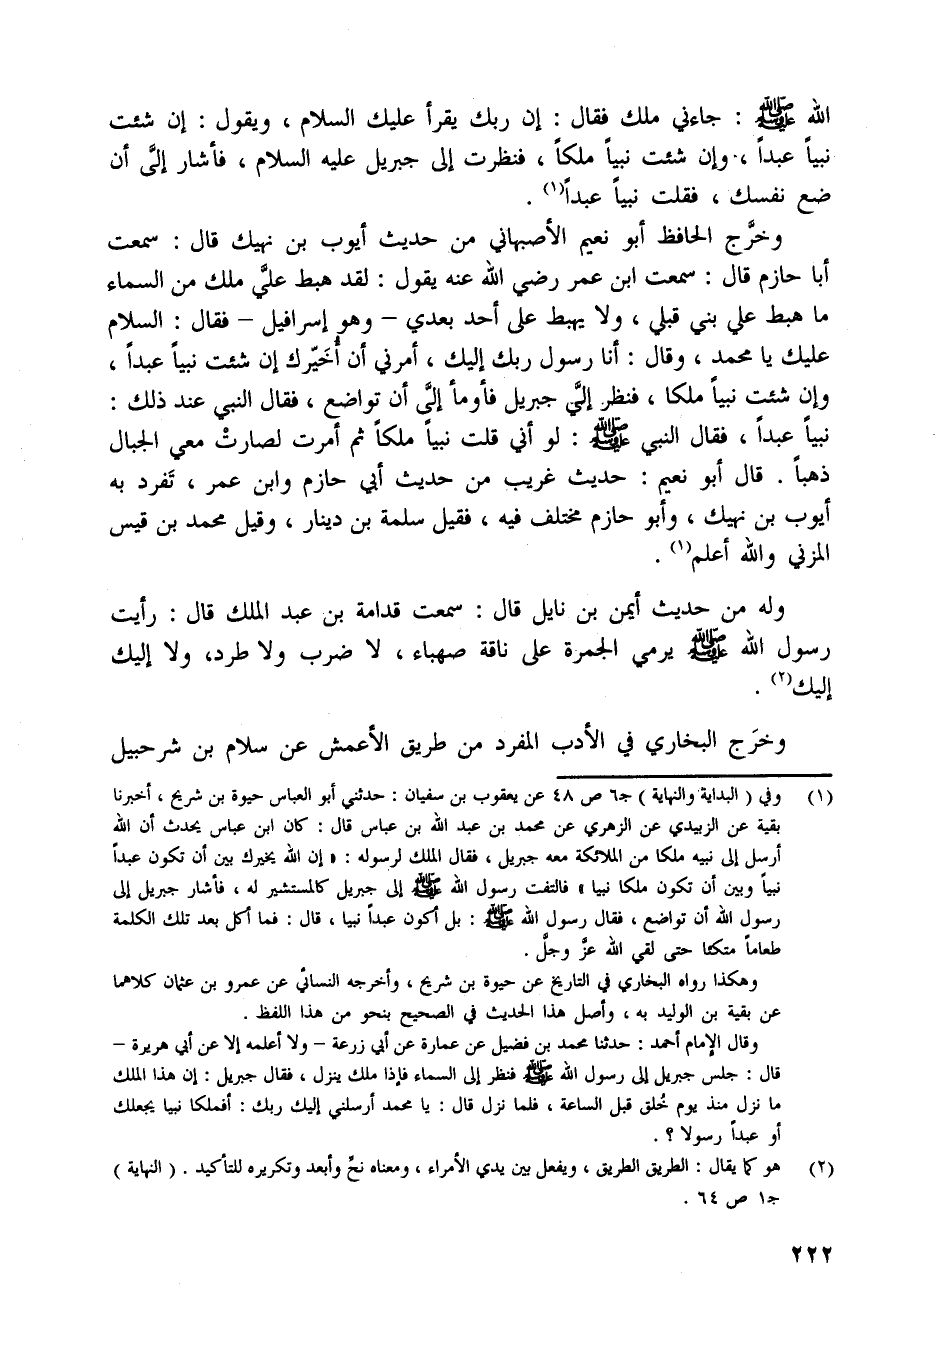 الله ﷺ : جاءني ملك فقال : إن ربك يقرأ عليك السلام ، ويقول : إن شئت
نبياً عبداً ، وإن شئت نبياً ملكاً ، فنظرت إلى جبريل عليه السلام ، فأشار إلَّى أن
ضع نفسك ، فقلت نبياً عبداً(١) .
وخرَّج الحافظ أبو نعيم الأصبهاني من حديث أيوب بن نهيك قال : سمعت
أبا حازم قال : سمعت ابن عمر رضي الله عنه يقول : لقد هبط عليَّ ملك من السماء
ما هبط علي بني قبلي ، ولا يهبط على أحد بعدي – وهو إسرافيل – فقال : السلام
عليك يا محمد ، وقال : أنا رسول ربك إليك ، أمرني أن أُخَيّرك إن شئت نبياً عبداً ،
وإن شئت نبياً ملكا ، فنظر إليَّ جبريل فأومأ إلَّى أن تواضع ، فقال النبي عند ذلك :
نبياً عبداً ، فقال النبي ﷺ : لو أني قلت نبياً ملكاً ثم أمرت لصارتْ معي الجبال
ذهباً . قال أبو نعيم : حديث غريب من حديث أبي حازم وابن عمر ، تَفرد به
أيوب بن نهيك ، وأبو حازم مختلف فيه ، فقيل سلمة بن دينار ، وقيل محمد بن قيس
المزني والله أعلم(١) .
وله من حديث أيمن بن نايل قال : سمعت قدامة بن عبد الملك قال : رأيت
رسول الله ﷺ يرمي الجمرة على ناقة صهباء ، لا ضرب ولا طرد، ولا إليك
إليك(٢) .
وخرَج البخاري في الأدب المفرد من طريق الأعمش عن سلام بن شرحبيل
(١) وفي ( البداية والنهاية ) جـ٦ ص ٤٨ عن يعقوب بن سفيان : حدثني أبو العباس حيوة بن شريح ، أخبرنا
بقية عن الزبيدي عن الزهري عن محمد بن عبد الله بن عباس قال : كان ابن عباس يحدث أن الله
أرسل إلى نبيه ملكا من الملائكة معه جبريل ، فقال الملك لرسوله : « إن الله يخيرك بين أن تكون عبداً
نبياً وبين أن تكون ملكا نبيا » فالتفت رسول الله ﷺ إلى جبريل كالمستشير له ، فأشار جبريل إلى
رسول الله أن تواضع ، فقال رسول الله ﷺ : بل أكون عبداً نبيا ، قال : فما أكل بعد تلك الكلمة
طعاماً متكئا حتى لقي الله عزَّ وجلَّ .
وهكذا رواه البخاري في التاريخ عن حيوة بن شريح ، وأخرجه النسائي عن عمرو بن عثمان كلاهما
عن بقية بن الوليد به ، وأصل هذا الحديث في الصحيح بنحو من هذا اللفظ .
وقال الإمام أحمد : حدثنا محمد بن فضيل عن عمارة عن أبي زرعة – ولا أعلمه إلا عن أبي هريرة –
قال : جلس جبريل إلى رسول الله ﷺ فنظر إلى السماء فإذا ملك ينزل ، فقال جبريل : إن هذا الملك
ما نزل منذ يوم خُلق قبل الساعة ، فلما نزل قال : يا محمد أرسلني إليك ربك : أفملكا نبيا يجعلك
أو عبداً رسولا ؟ .
(٢) هو كما يقال : الطريق الطريق ، ويفعل بين يدي الأمراء ، ومعناه نحِّ وأبعد وتكريره للتأكيد . ( النهاية )
جـ١ ص ٦٤ .
٢٢٢